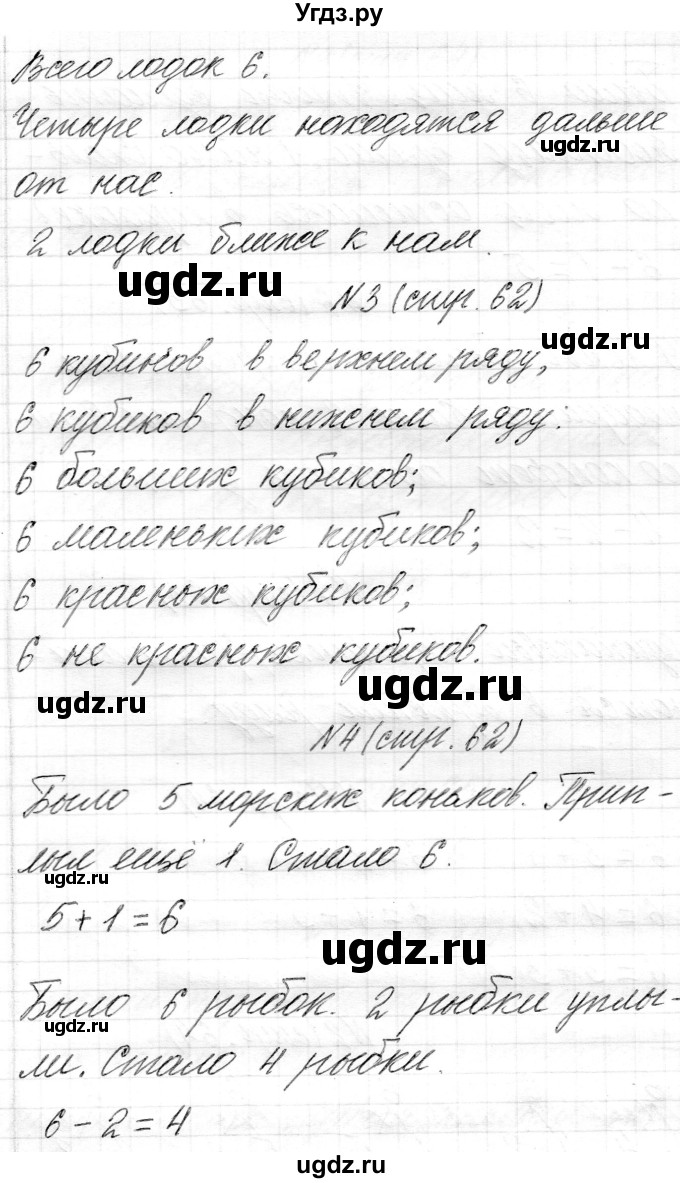 Угдз.ру
Всего лодок 6.
Четыре лодки находятся дальше
ugdz.ru
от нас.
2 лодки ближе к нам.
ugdz.ru
N3 (стр. 62)
ugdz.ru
6 кубиков в верхнем ряду,
6 кубиков в нижнем ряду.
6 больших кубиков;
6 маленьких кубиков;
6 красных кубиков;
6 не красных кубиков.
ugdz.ru
ugdz.ru
N4 (стр. 62)
Было 5 морских коньков. Прип-
лыл ещё 1. Стало 6.
ugdz.ru
5+1=6
ugdz.ru
Было 6 рыбок. 2 рыбки уплы-
ugdz.ru
ли. Стало 4 рыбки.
6-2=4
ugdz.ru
ugdz.ru